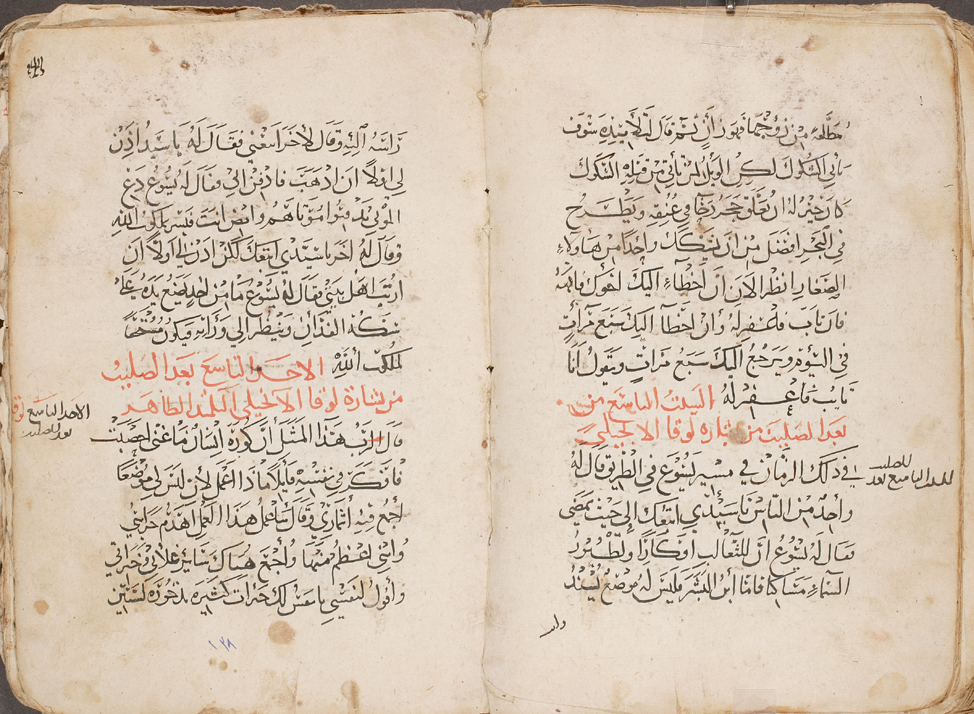 مطلعه من زوجها فهون ان تتم قال لتلاميذه سوف
تاتي الشكوك لكن الويل لمن تأتي من قبله الشكوك
كان خير له ان تعلق حجر رحا في عنقه ويطرح
في البحر افضل من ان يشكك واحدا من هاولاء
الصغار انظر الان ان اخطاء اليك اخوك فانهه
فان تاب فاغفر له وان اخطا اليك سبع مرات
في اليوم ويرجع اليك سبع مرات ويقول انا
تايب فاغفر له السبت التاسع من
بعد الصليب من بشاره لوقا الانجيلي
في ذلك الزمان في مسير يسوع في الطريق قال له
واحد من الناس يا سيدي اتبعك الي حيث تمضي
فقال له يسوع ان للثعالب اوكارا ولطيور
السماء مساكنا فاما ابن البشر فليس له موضع يسند
للسبت التاسع بعد
للصليب
راسه اليه وقال لاخر اتبعني فقال له يا سيد اذن
لي اولا ان اذهب فادفن ابي وقال له يسوع دع
الموتى يدفنوا موتاهم وامض انت فبشر بملكوت الله
وقال له اخر يا سيدي اتبعك لكن اذن لي اولا ان
ارتب اهل بيتي فقال له يسوع ما من احد يضع يده على
سكة الفدان وينظر الي ورائه ويكون مستحقا
لملكوت الله الاحد التاسع بعد الصليب
من بشارة لوقا الانجيلي التلميذ الطاهر
قال الرب هذا المثل ان كورة انسان ما غني اخصبت
فافكر في نفسه قايلا ماذا اعمل لان ليس لي موضعا
اجمع فيه اثماري وقال ساعمل هذا العمل اهدم خزايني
وابني اعظم منها واجمع هناك سائر غلاتي وخيراتي
واقول لنفسي يا نفس لك خيرات كثيره مذخوره لسنين
الاحد التاسع لوقا
بعد الصليب
١٧٨